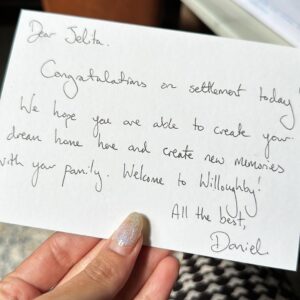 Dear Jelita.
Congratulations on settlement today!
We hope you are able to create your
dream home here and create new memories
with your family. Welcome to Willoughby!
All the best,
Daniel